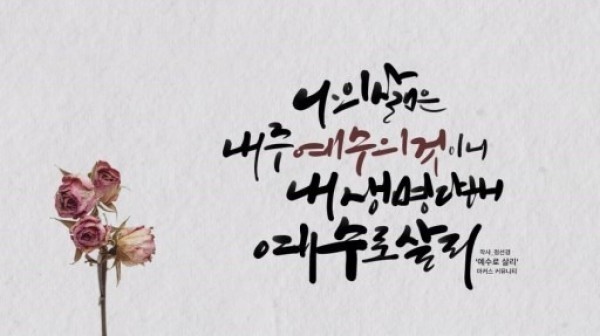 나의 삶은
내 주 예수의 것이니
내 생명 다해
예수로 살리
작사_정선경
'예수로 살리'
마커스 커뮤니티